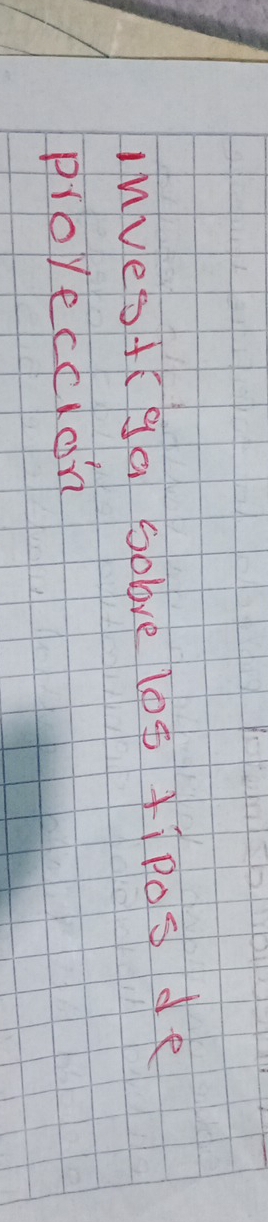 investiga sobre los tipos de
proyección